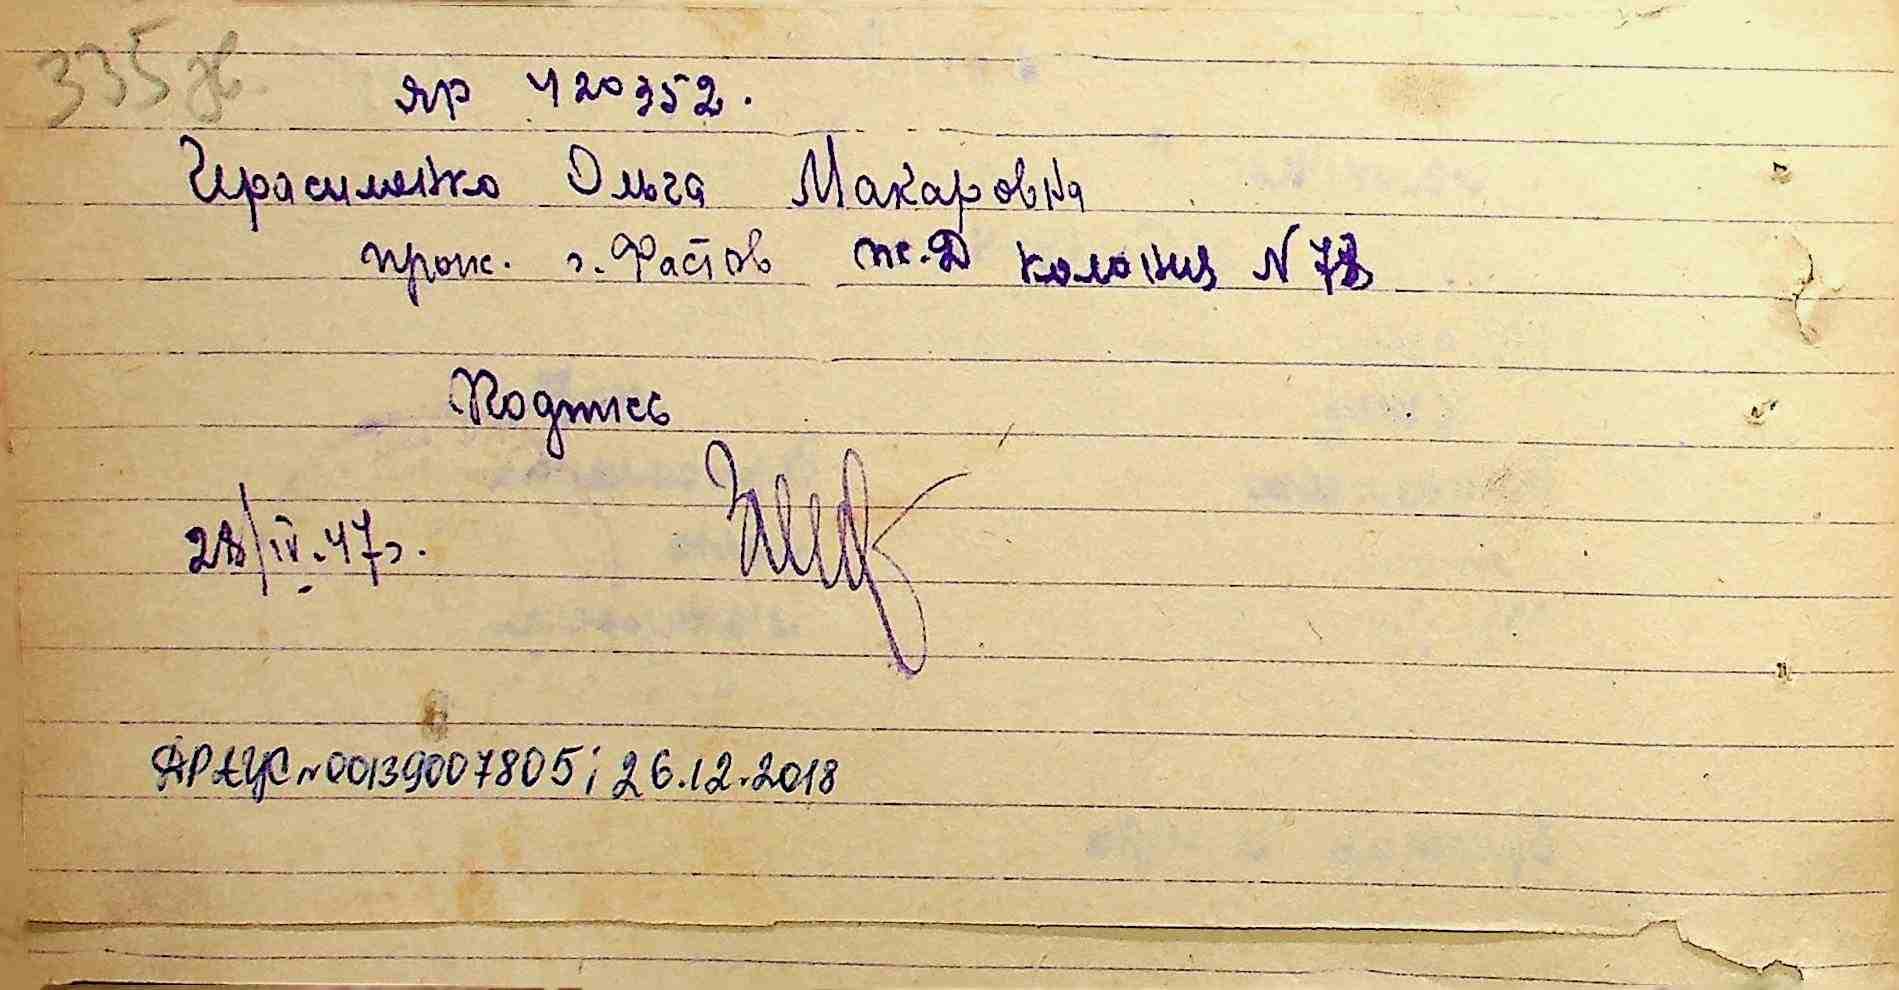 335ж.
ЯР 420352.
Герасименко Ольга Макаровна
прож. г. Фастов ж.Д колония N 78
Подпись
28/IV.47г.
АРАУС N 00139007805; 26.12.2018